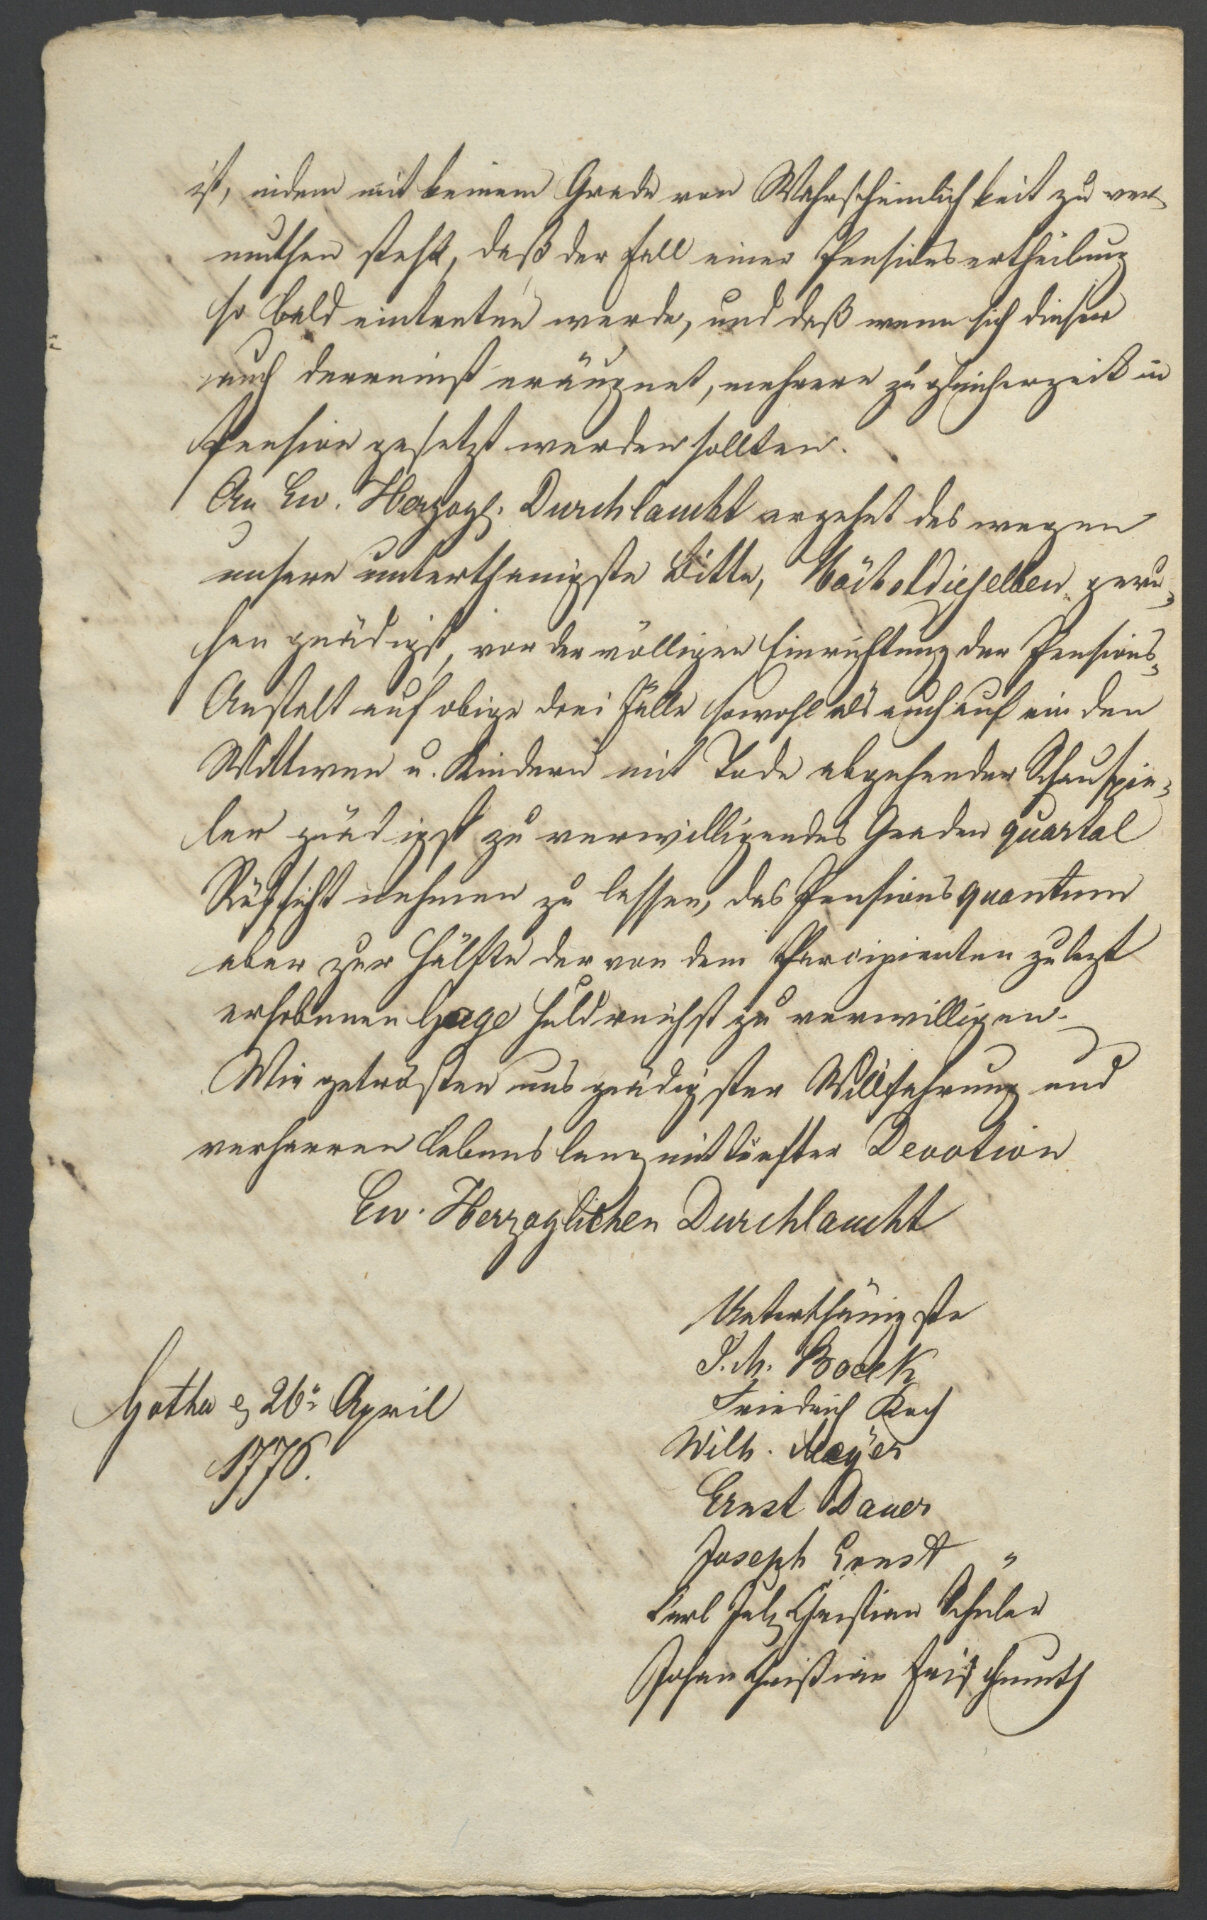 ist, indem mit keinem Grade von Wahrscheinlichkeit zu ver-
muthen steht, daß der Fall einer Pensionsertheilung
so bald eintreten werde, und daß wenn sich dieser
auch dereinst eräugnet, mehrere zu gleicherzeit in
Pension gesetzt werden sollten.
An Ew. Herzogl. Durchlaucht ergehet deswegen
unsere unterthänigste Bitte, Höchstdieselben geru-
hen gnädigst, vor der völligen Einrichtung der Pensions-
Anstalt auf obige drei Fälle sowohl als auch auf ein den
Wittwen u. Kindern mit Tode abgehender Schauspie-
ler gnädigst zu verwilligendes Gnaden quartal
Rücksicht nehmen zu lassen, das Pensionsquantum
aber zur Hälfte der von dem Percipienten zulezt
erhobenen Gage huldreichst zu verwilligen.
Wir getrösten uns gnädigster Willfahrung und
verharren lebenslang mit tiefster Devotion
Ew. Herzoglichen Durchlaucht
Unterthänigste
J. M. Boeck
Friedrich Koch
Gotha 26. April
Wilh. Meÿer
1776.
Ernst Dauer
Joseph Ernst
Carl Julg Christian Schüler
Johan Christian Frischmuth